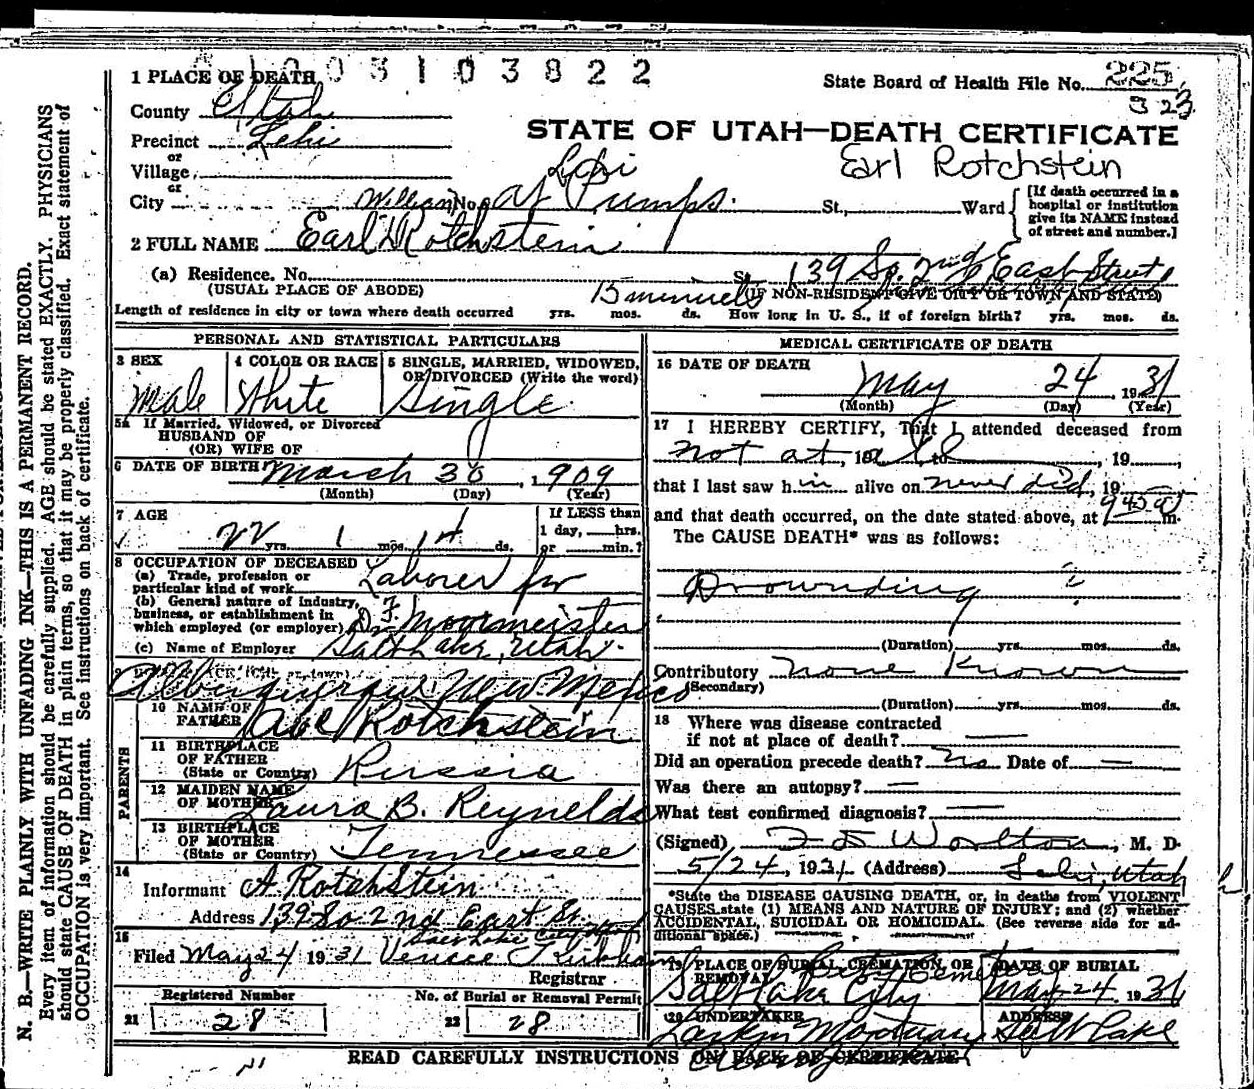 1 PLACE OF DEATH
0 1 0 0 3 1 0 3 8 2 2
State Board of Health File No. 225
323
County Utah
Precinct Lehi
or
Village
or
City
STATE OF UTAH—DEATH CERTIFICATE
Earl Rotchstein
Lehi
No. at Pumps. St., Ward
[If death occurred in a
hospital or institution
give its NAME instead
of street and number.]
2 FULL NAME Earl Rotchstein
(a) Residence. No. St. 139 So. 2nd East Street
(USUAL PLACE OF ABODE)
15 minutes
(IF NON-RESIDENT GIVE CITY OR TOWN AND STATE)
Length of residence in city or town where death occurred yrs. mos. ds. How long in U. S., if of foreign birth? yrs. mos. ds.
PERSONAL AND STATISTICAL PARTICULARS
3 SEX
Male
4 COLOR OR RACE
White
5 SINGLE, MARRIED, WIDOWED,
OR DIVORCED (Write the word)
Single
5A If Married, Widowed, or Divorced
HUSBAND OF
(OR) WIFE OF
6 DATE OF BIRTH March 30, 1909
(Month) (Day) (Year)
7 AGE
22 yrs. 1 mos. ds.
If LESS than
1 day, hrs.
or min.?
8 OCCUPATION OF DECEASED
(a) Trade, profession or
particular kind of work Laborer for
(b) General nature of industry,
business, or establishment in
which employed (or employer) Dr. F. Moormeister
(c) Name of Employer Salt Lake, Utah.
9
Albuquerque New Mexico
PARENTS
10 NAME OF
FATHER Abe Rotchstein
11 BIRTHPLACE
OF FATHER
(State or Country) Russia
12 MAIDEN NAME
OF MOTHER Laura B. Reynolds
13 BIRTHPLACE
OF MOTHER
(State or Country) Tennessee
14
Informant A. Rotchstein
Address 139 So 2nd East St.
Salt Lake City
15
Filed May 24 1931
Registrar
Registered Number
21 28
No. of Burial or Removal Permit
22 28
MEDICAL CERTIFICATE OF DEATH
16 DATE OF DEATH
May 24, 1931
(Month) (Day) (Year)
17 I HEREBY CERTIFY, That I attended deceased from
not at, 19 all to, 19
that I last saw h im alive on never did, 19
and that death occurred, on the date stated above, at 945 a m.
The CAUSE DEATH* was as follows:
Drownding
(Duration) yrs. mos. ds.
Contributory none Known
(Secondary)
(Duration) yrs. mos. ds.
18 Where was disease contracted
if not at place of death? —
Did an operation precede death? No Date of —
Was there an autopsy? —
What test confirmed diagnosis? —
(Signed) Worlton, M. D.
5/24, 1931 (Address) Lehi, Utah
*State the DISEASE CAUSING DEATH, or, in deaths from VIOLENT
CAUSES state (1) MEANS AND NATURE OF INJURY; and (2) whether
ACCIDENTAL, SUICIDAL OR HOMICIDAL. (See reverse side for ad-
ditional space.)
19 PLACE OF BURIAL, CREMATION, OR
REMOVAL City Cemetery
Salt Lake City
DATE OF BURIAL
May 24 1931
20 UNDERTAKER
Larkin Mortuary
ADDRESS
Salt Lake
READ CAREFULLY INSTRUCTIONS ON BACK OF CERTIFICATE
N. B.—WRITE PLAINLY WITH UNFADING INK—THIS IS A PERMANENT RECORD.
Every item of information should be carefully supplied. AGE should be stated EXACTLY. PHYSICIANS
should state CAUSE OF DEATH in plain terms, so that it may be properly classified. Exact statement of
OCCUPATION is very important. See instructions on back of certificate.